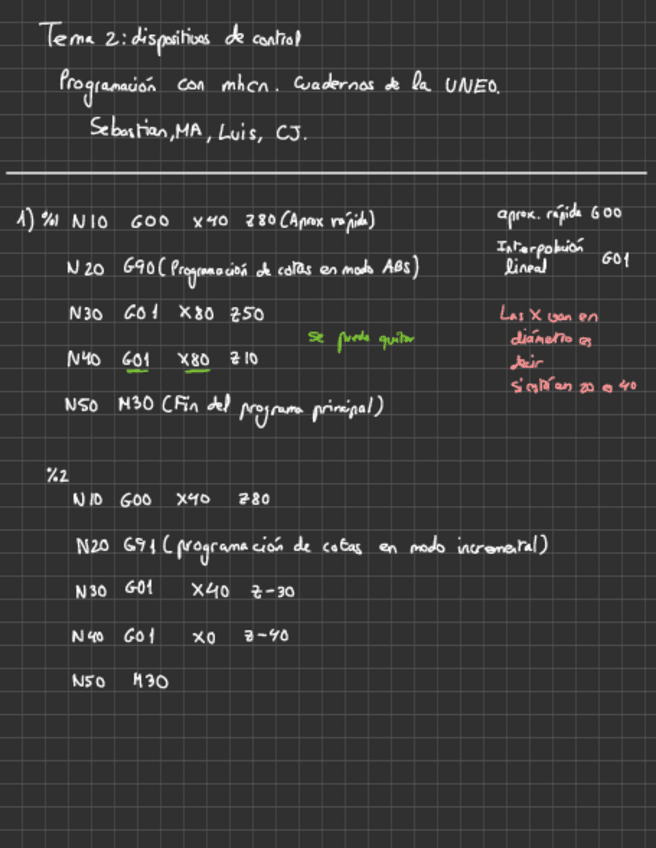 Tema 2: dispositivos de control
Programación con mhcn. Cuadernos de la UNED.
Sebastian, MA, Luis, CJ.
1) %1 N10 G00 X40 Z80 (Aprox rápida)
aprox. rápida G00
Interpolación lineal G01
N20 G90 (Programación de cotas en modo ABS)
N30 G01 X80 Z50
Las X van en
diámetro es
decir
si está en 20 es 40
se puede quitar
N40 G01 X80 Z10
N50 M30 (Fin del programa principal)
%2
N10 G00 X40 Z80
N20 G91 (programación de cotas en modo incremental)
N30 G01 X40 Z-30
N40 G01 X0 Z-40
N50 M30